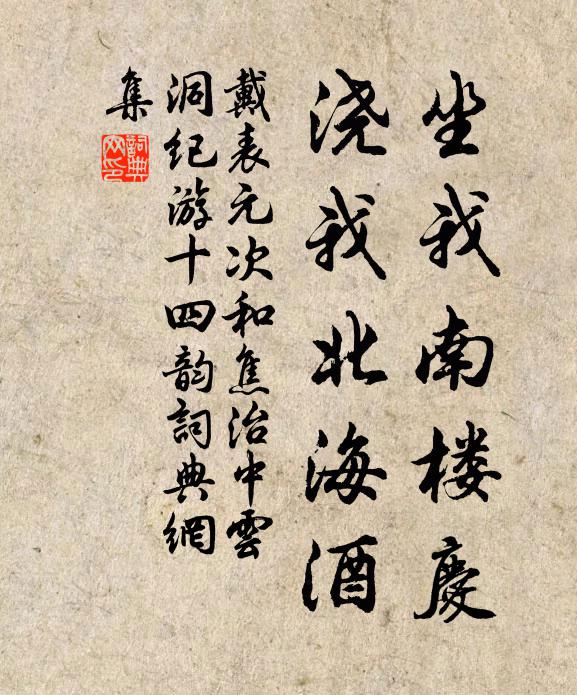 坐我南楼庆
浇我北海酒
戴表元次和焦治中雲
洞纪游十四韵詞典網
集
詞典
网印